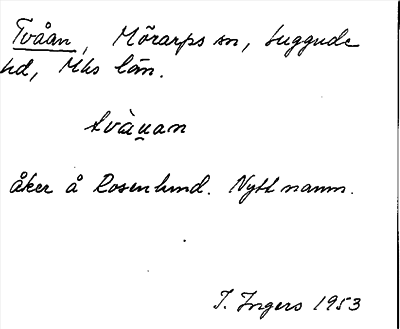 Tvåan, Mörarps sn, Luggude
hd, Mhs län.
tvàu̯an
åker å Rosenlund. Nytt namn.
I. Ingers 1953